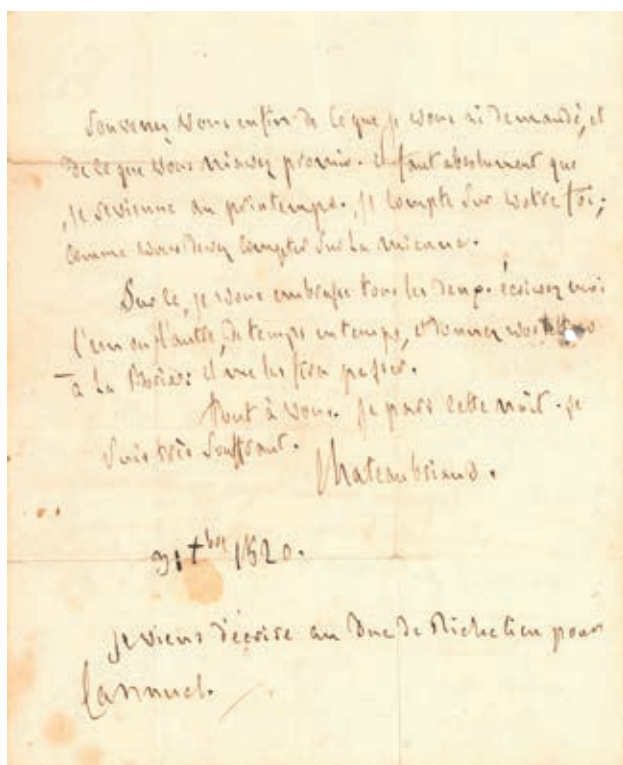 Souvenez vous enfin de ce que je vous ai demandé, et
de ce que vous m'avez promis. il faut absolument que
je revienne au printemps. je compte sur votre foi,
comme vous devez compter sur la mienne.
Sur ce, je vous embrasse tous les deux. écrivez moi
l'un ou l'autre, de temps en temps, et donnez vos
à Le Moine: il me les fera passer.
Tout à vous. je pars cette nuit. je
suis très souffrant.
Chateaubriand.
31 Xbre 1820.
je viens d'écrire au Duc de Richelieu pour
Cannuel.